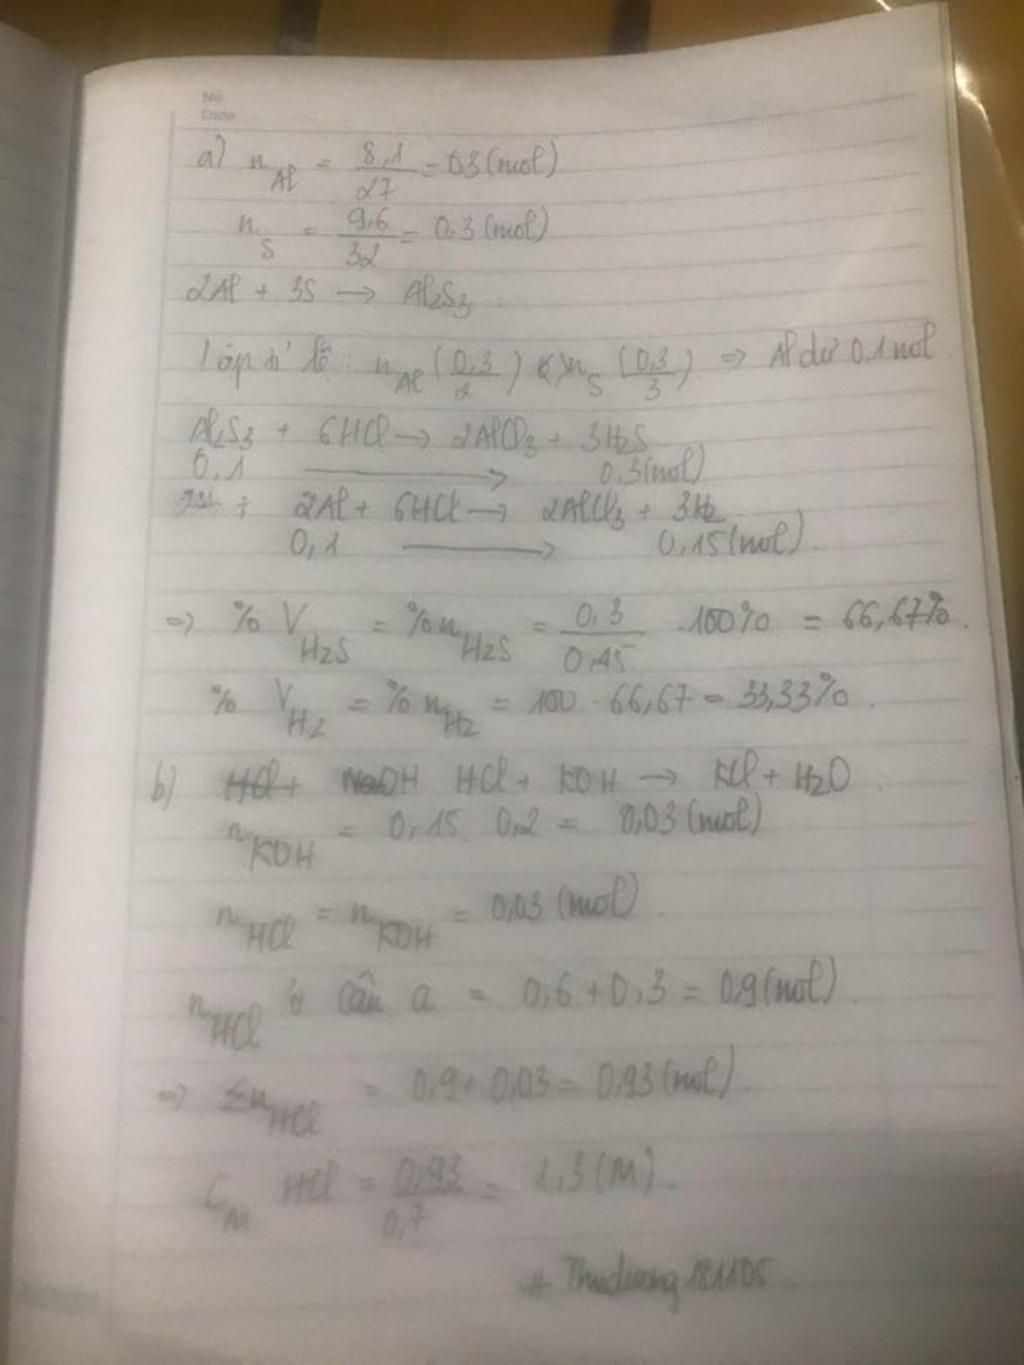 No
Date
a) n Al = 8,1/27 = 0,3 (mol)
n S = 9,6/32 = 0,3 (mol)
2Al + 3S → Al2S3
Lập tỉ lệ: n Al (0,3/2) > n S (0,3/3) ⇒ Al dư 0,1 mol
Al2S3 + 6HCl → 2AlCl3 + 3H2S
0,1 → 0,3 (mol)
2Al + 6HCl → 2AlCl3 + 3H2
0,1 → 0,15 (mol).
⇒ % V H2S = % n H2S = 0,3/0,45 . 100% = 66,67%.
% V H2 = % n H2 = 100 - 66,67 = 33,33%.
b) HCl + NaOH HCl + KOH → KCl + H2O.
n KOH = 0,15 . 0,2 = 0,03 (mol)
n HCl = n KOH = 0,03 (mol).
n HCl ở câu a = 0,6 + 0,3 = 0,9 (mol).
⇒ Σn HCl = 0,9 + 0,03 = 0,93 (mol).
C M HCl = 0,93/0,7 = 1,3 (M).
# Thuduong 181105